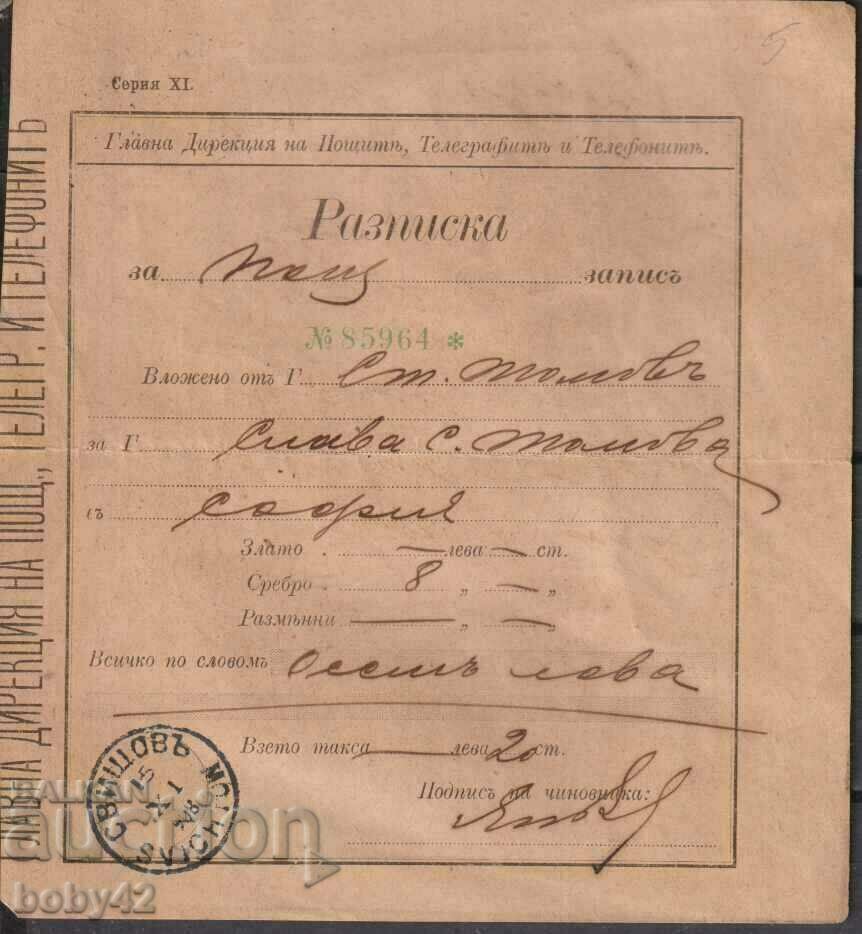 5
Серия XI.
Главна Дирекция на Пощитѣ, Телеграфитѣ и Телефонитѣ.
Разписка
за Пощ записъ
№ 85964 *
Вложено отъ Г. Ст. Томовъ
за Г Слава С. Томова
съ София
Злато . — лева — ст.
Сребро . 8 „ — „
Размѣнни — „ — „
Всичко по словомъ Осемъ лева
Взето такса — лева 20 ст.
Подписъ на чиновника:
ГЛАВНА ДИРЕКЦИЯ НА ПОЩ., ТЕЛЕГР. И ТЕЛЕФОНИТѢ
СВИЩОВЪ
15
IX 1
SVICHTOW
BALKAN
auction
boby42